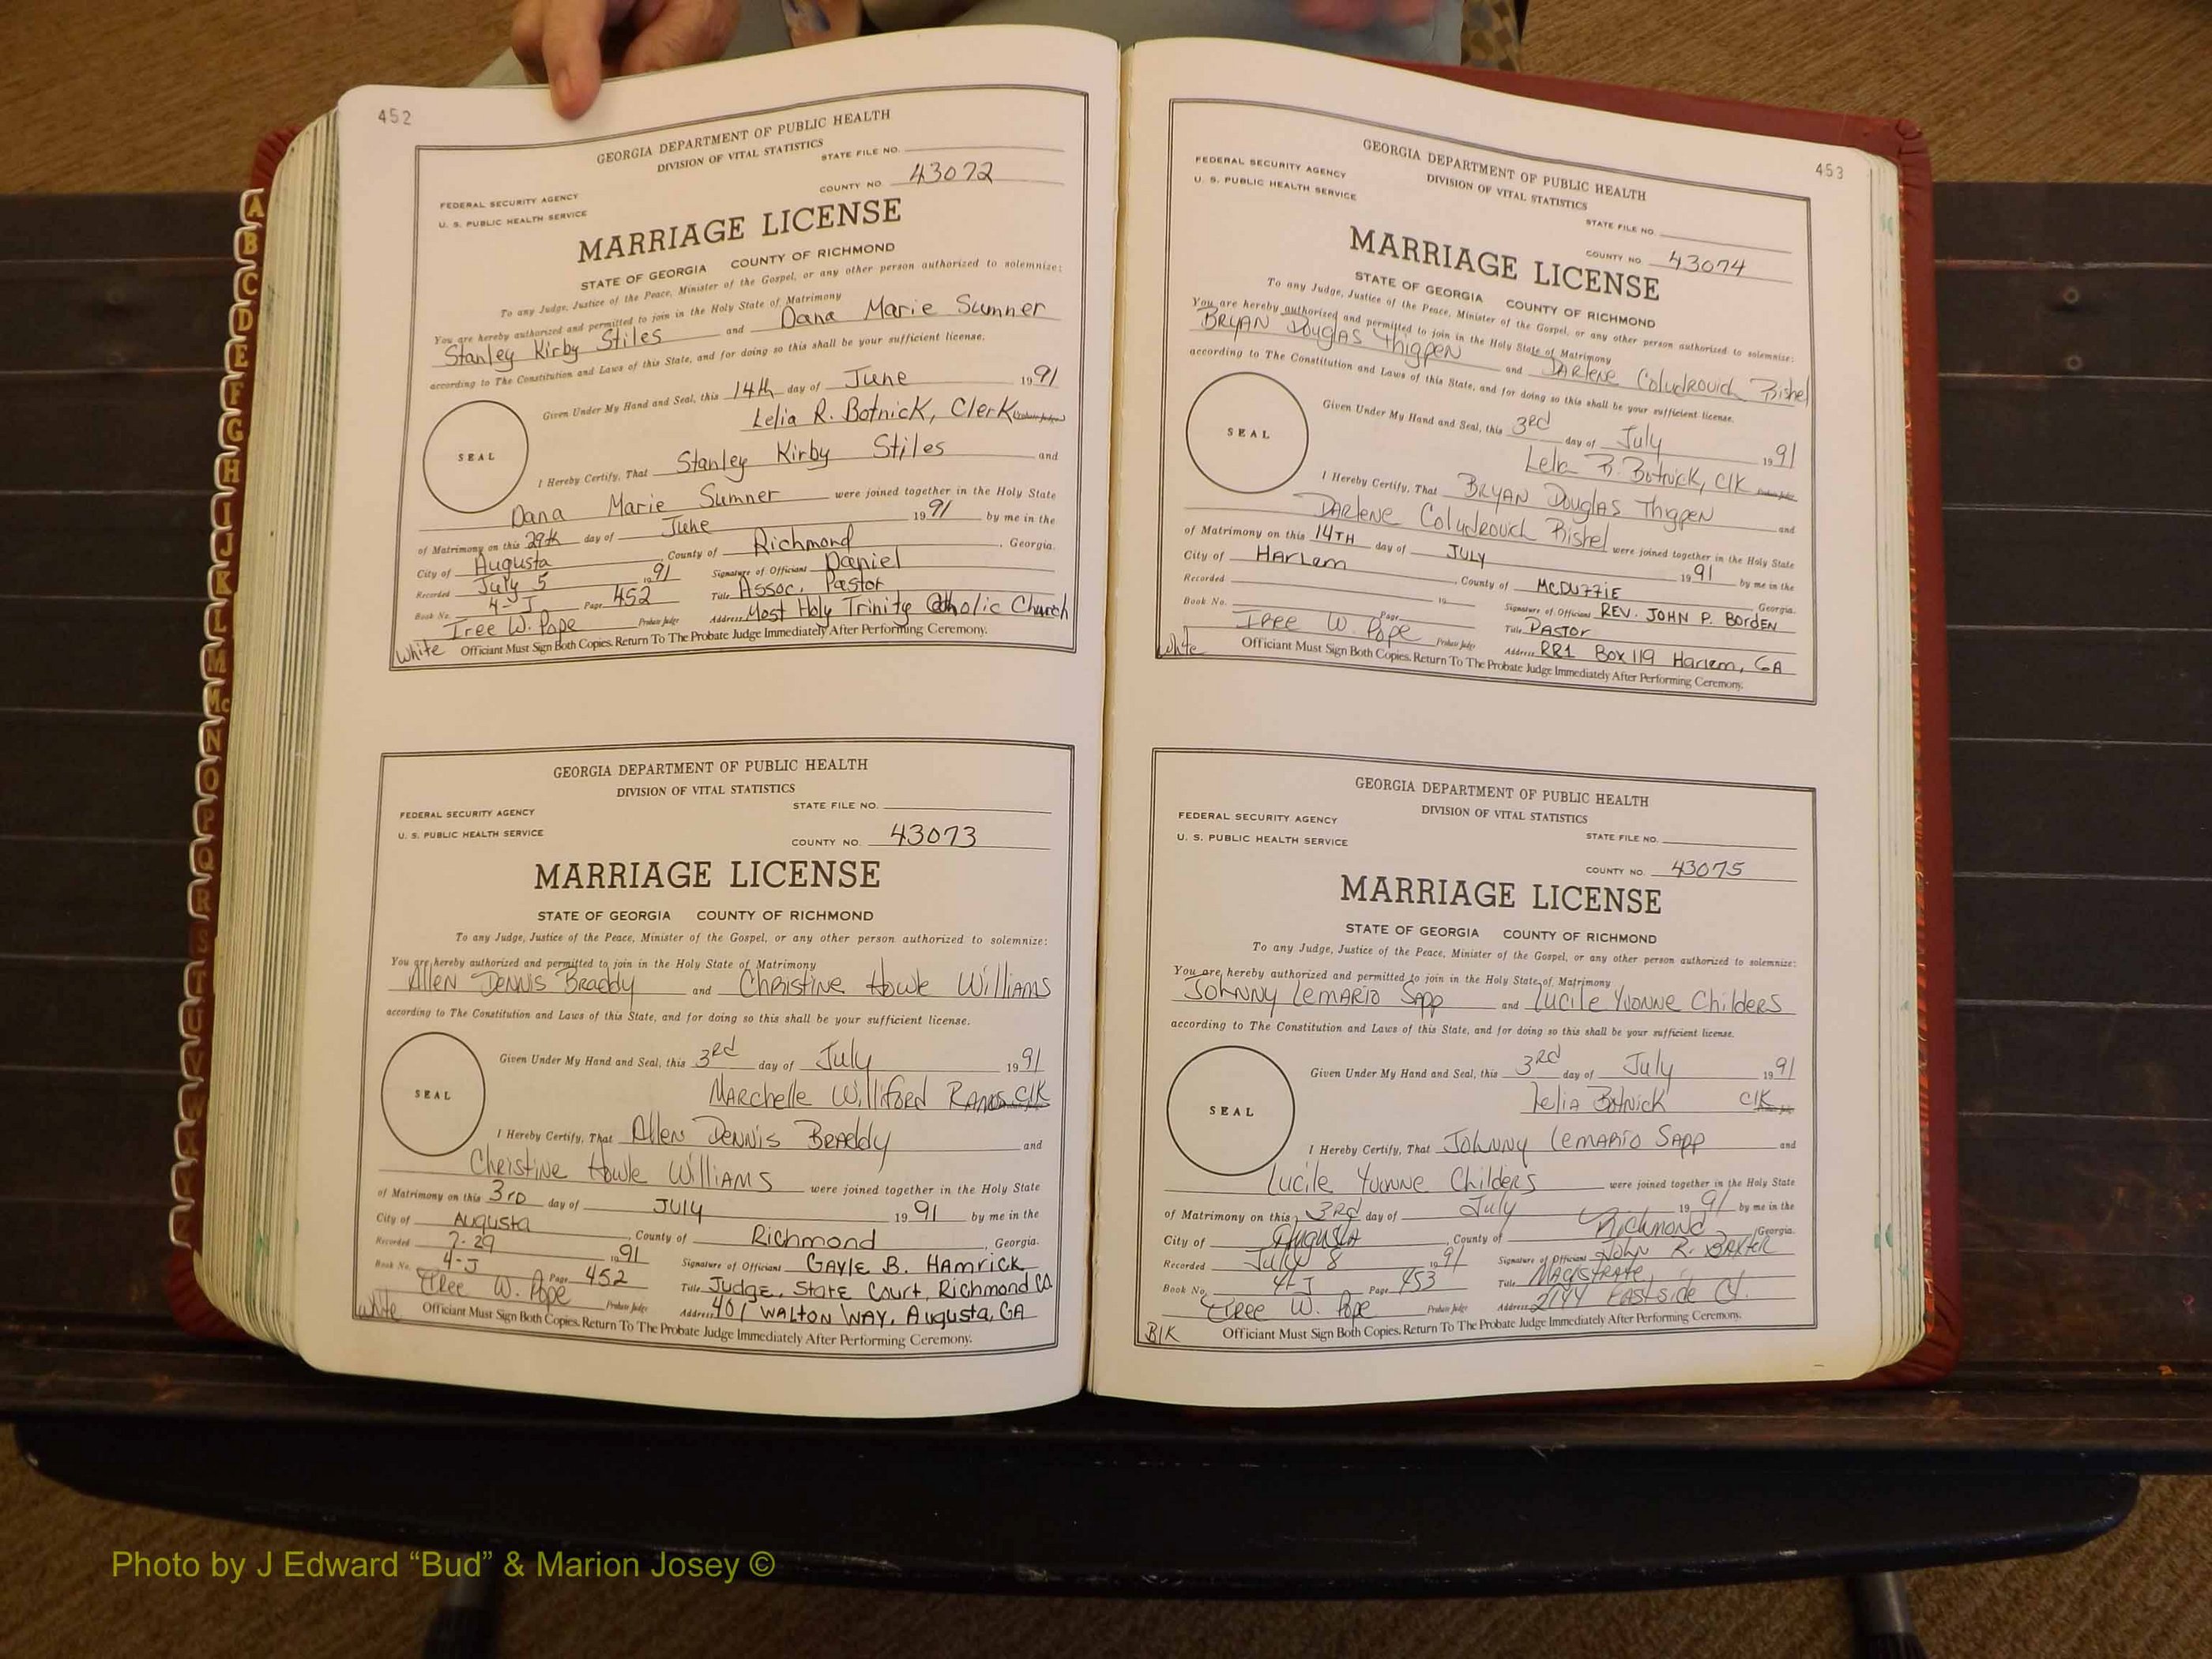 452
GEORGIA DEPARTMENT OF PUBLIC HEALTH
DIVISION OF VITAL STATISTICS
STATE FILE NO.
FEDERAL SECURITY AGENCY
COUNTY NO. 43072
U. S. PUBLIC HEALTH SERVICE
MARRIAGE LICENSE
STATE OF GEORGIA COUNTY OF RICHMOND
To any Judge, Justice of the Peace, Minister of the Gospel, or any other person authorized to solemnize:
You are hereby authorized and permitted to join in the Holy State of Matrimony
Stanley Kirby Stiles and Dana Marie Sumner
according to The Constitution and Laws of this State, and for doing so this shall be your sufficient license.
Given Under My Hand and Seal, this 14th day of June 1991
Lelia R. Botnick, Clerk
SEAL
I Hereby Certify, That Stanley Kirby Stiles and
Dana Marie Sumner were joined together in the Holy State
of Matrimony on this 29th day of June 1991 by me in the
City of Augusta, County of Richmond, Georgia.
Recorded July 5 1991 Signature of Officiant Daniel
Book No. 4-J Page 452 Title Assoc. Pastor
Iree W. Pope Probate Judge Address Most Holy Trinity Catholic Church
White Officiant Must Sign Both Copies. Return To The Probate Judge Immediately After Performing Ceremony.
GEORGIA DEPARTMENT OF PUBLIC HEALTH
DIVISION OF VITAL STATISTICS
FEDERAL SECURITY AGENCY STATE FILE NO.
U. S. PUBLIC HEALTH SERVICE COUNTY NO. 43073
MARRIAGE LICENSE
STATE OF GEORGIA COUNTY OF RICHMOND
To any Judge, Justice of the Peace, Minister of the Gospel, or any other person authorized to solemnize:
You are hereby authorized and permitted to join in the Holy State of Matrimony
Allen Dennis Braddy and Christine Howle Williams
according to The Constitution and Laws of this State, and for doing so this shall be your sufficient license.
Given Under My Hand and Seal, this 3rd day of July 1991
Marchelle Williford Clk
SEAL
I Hereby Certify, That Allen Dennis Braddy and
Christine Howle Williams were joined together in the Holy State
of Matrimony on this 3rd day of July 1991 by me in the
City of Augusta, County of Richmond, Georgia.
Recorded 7-29 1991 Signature of Officiant Gayle B. Hamrick
Book No. 4-J Page 452 Title Judge, State Court, Richmond Co
Iree W. Pope Probate Judge Address 401 Walton Way, Augusta, GA
White Officiant Must Sign Both Copies. Return To The Probate Judge Immediately After Performing Ceremony.
453
GEORGIA DEPARTMENT OF PUBLIC HEALTH
DIVISION OF VITAL STATISTICS
FEDERAL SECURITY AGENCY STATE FILE NO.
U. S. PUBLIC HEALTH SERVICE COUNTY NO. 43074
MARRIAGE LICENSE
STATE OF GEORGIA COUNTY OF RICHMOND
To any Judge, Justice of the Peace, Minister of the Gospel, or any other person authorized to solemnize:
You are hereby authorized and permitted to join in the Holy State of Matrimony
Bryan Douglas Thigpen and Darlene Coludrovich Rishel
according to The Constitution and Laws of this State, and for doing so this shall be your sufficient license.
Given Under My Hand and Seal, this 3rd day of July 1991
R. Botnick, Clk
SEAL
I Hereby Certify, That Bryan Douglas Thigpen and
Darlene Coludrovich Rishel were joined together in the Holy State
of Matrimony on this 14th day of July 1991 by me in the
City of Harlem, County of McDuffie Georgia.
Recorded 19 Signature of Officiant Rev. John P. Borden
Book No. Page Title Pastor
Iree W. Pope Probate Judge Address RR1 Box 119 Harlem, GA
White Officiant Must Sign Both Copies. Return To The Probate Judge Immediately After Performing Ceremony.
GEORGIA DEPARTMENT OF PUBLIC HEALTH
DIVISION OF VITAL STATISTICS
FEDERAL SECURITY AGENCY STATE FILE NO.
U. S. PUBLIC HEALTH SERVICE COUNTY NO. 43075
MARRIAGE LICENSE
STATE OF GEORGIA COUNTY OF RICHMOND
To any Judge, Justice of the Peace, Minister of the Gospel, or any other person authorized to solemnize:
You are hereby authorized and permitted to join in the Holy State of Matrimony
Johnny Lemario Sapp and Lucile Yvonne Childers
according to The Constitution and Laws of this State, and for doing so this shall be your sufficient license.
Given Under My Hand and Seal, this 3rd day of July 1991
Lelia Botnick Clk
SEAL
I Hereby Certify, That Johnny Lemario Sapp and
Lucile Yvonne Childers were joined together in the Holy State
of Matrimony on this 3rd day of July 1991 by me in the
City of Augusta, County of Richmond, Georgia.
Recorded July 8 1991 Signature of Officiant John R. Baxter
Book No. 4-J Page 453 Title Magistrate
Iree W. Pope Probate Judge Address 2144 Eastside Ct.
Blk Officiant Must Sign Both Copies. Return To The Probate Judge Immediately After Performing Ceremony.
A
B
C
D
E
F
G
H
I
J
K
L
M
Mc
N
O
P
Q
R
S
T
U
V
W
X
Y
Z
Photo by J Edward “Bud” & Marion Josey ©